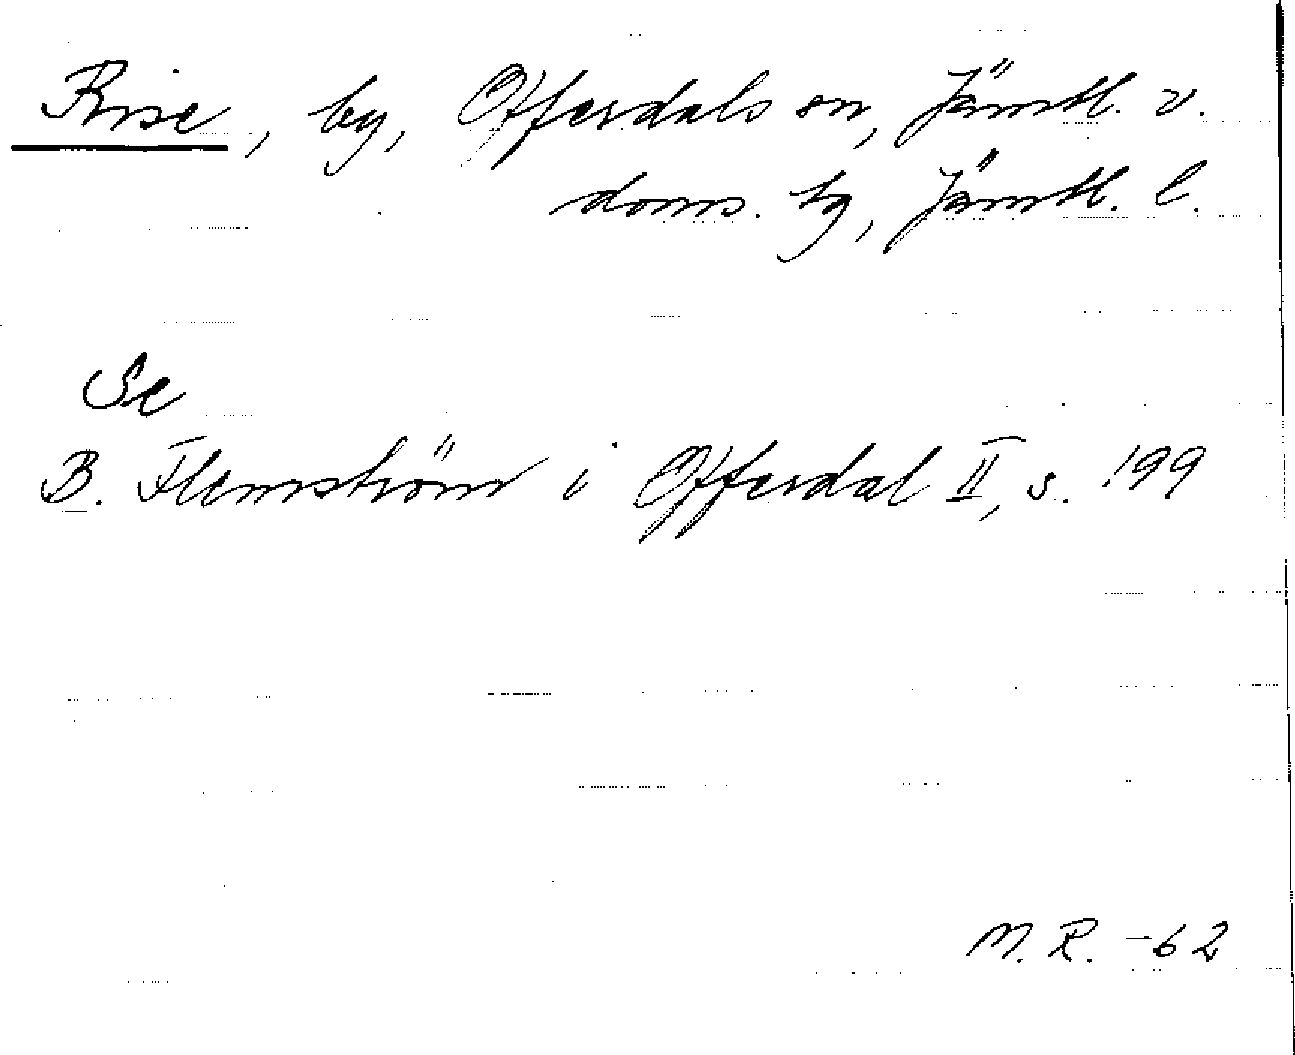 Rise, by, Offerdals sn, Jämtl. v.
doms. hg, Jämtl. l.
Se
B. Flemström i Offerdal II, s. 199
M. R. -62